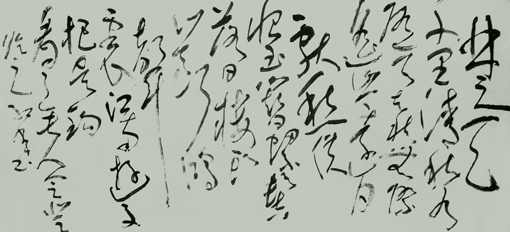 楚天
千里清秋水
随天去秋无际
遥岑远目
献愁供
恨玉簪螺髻
落日楼头
断鸿
声
里江南游子
把吴钩
看了无人会登
临意